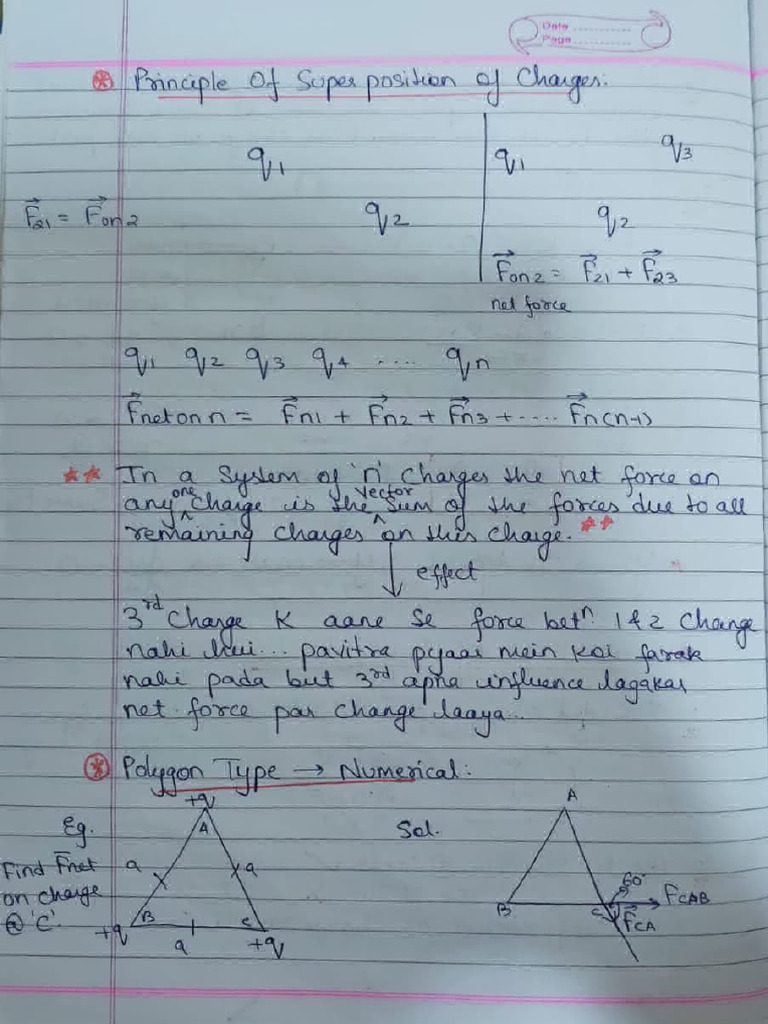 Date ..............
Page ..............
Principle Of Superposition of Charges:
q1
q2
F⃗21 = F⃗on 2
q1
q3
q2
F⃗on 2 = F⃗21 + F⃗23
net force
q1 q2 q3 q4 ..... qn
F⃗net on n = F⃗n1 + F⃗n2 + F⃗n3 + ..... F⃗n(n-1)
** In a System of 'n' Charges the net force on
any one charge is the vector sum of the forces due to all
remaining charges on this charge. **
effect
3rd Charge K aane Se force betn 1 & 2 Change
nahi hui... pavitra pyaar mein koi farak
nahi pada but 3rd apna influence lagakar
net force par change laaya..
Polygon Type → Numerical:
Eg.
Find F⃗net
on charge
@ 'C'.
+q
A
a
a
B
C
+q
a
+q
Sol.
A
B
C
60°
FCAB
F⃗CA